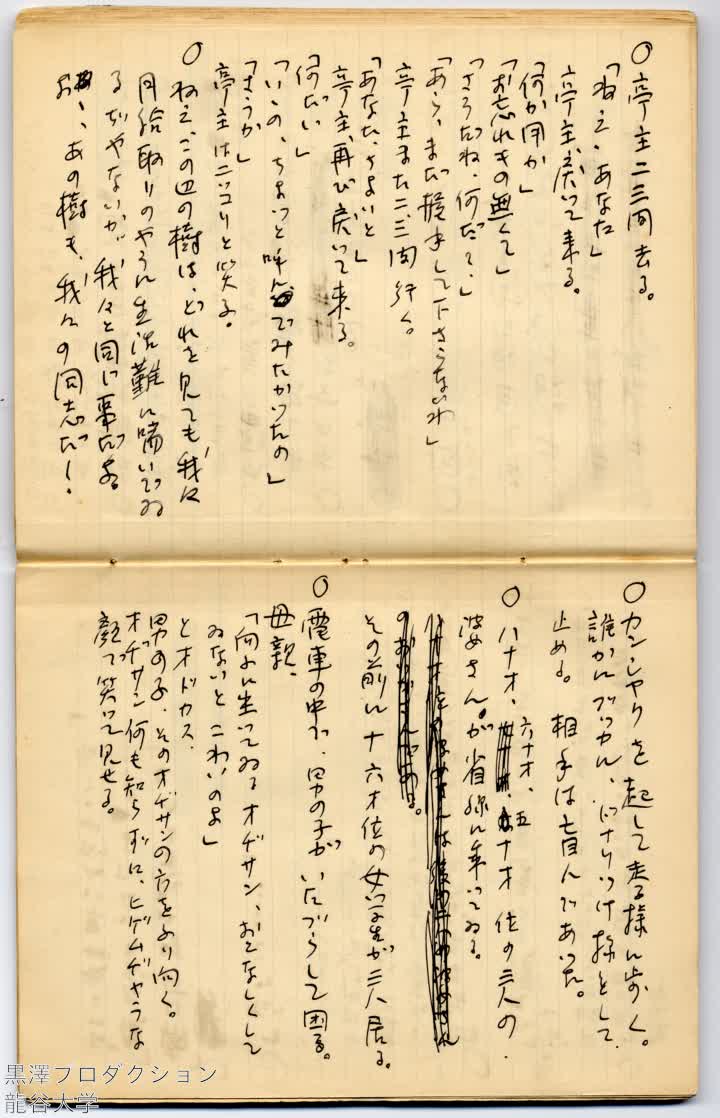 ○亭主二三間去る。
「ねえ、あなた」
亭主、戻いて来る。
「何か用か」
「お忘れもの無くて」
「さうだね、何だい、」
「あら、まだ握手して下さらないわ」
亭主また二、三間行く。
「あなた、ちよいと」
亭主、再び戻いて来る。
「何だい」
「いゝの、ちよつと呼んでみたかつたの」
「さうか」
亭主はニッコリと笑ふ。
○ねえ、この辺の樹は、どれを見ても我々
月給取りのやうに生活難に喘いでゐ
るぢやないか゛我々と同じ事だよ。
おゝ、あの樹も、我々の同志だ！
○カンシヤクを起して走る様に歩く。
誰かにブツカル、ドナリつけ様として
止める。相手は盲目であつた。
○八十才、六十才、五十才位の三人の
婆さんが省線に乗つてゐる。
その前に十六才位の女学生が三人居る。
○電車の中で、男の子がいたづらして困る。
母親、
「向ふに坐つてゐるオヂサン、おとなしくして
ゐないとこわいのよ」
とオドカス、
男の子、そのオヂサンの方をふり向く。
オヂサン何も知らずに、ヒゲムヂヤラな
顔で笑つて見せる。
黒澤プロダクション
龍谷大学